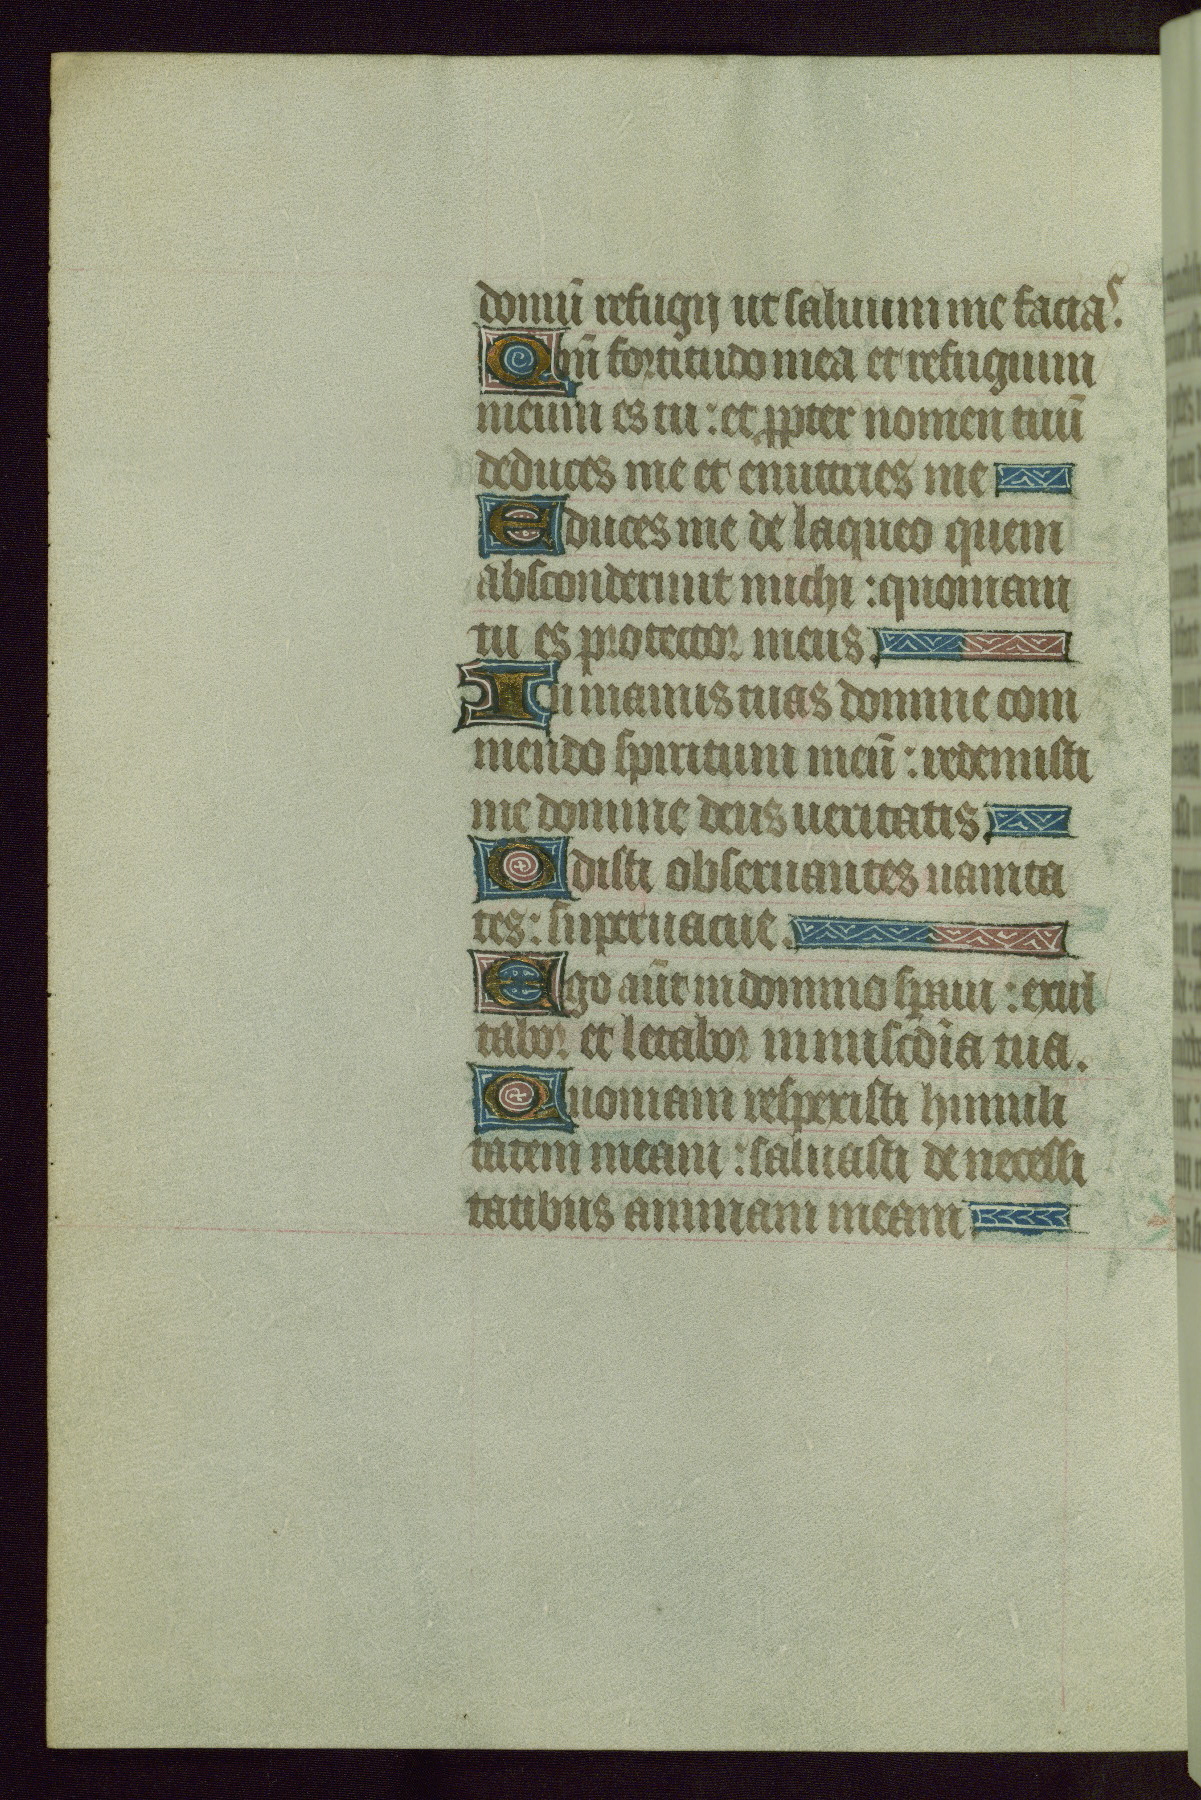 domū refugij ut saluum me facias.
Qm̄ fortitudo mea et refugium
meum es tu : et ꝓpter nomen tuū
deduces me et enutries me
Educes me de laqueo quem
absconderunt michi : quoniam
tu es protector meus.
In manus tuas domine com
mendo spiritum meū : redemisti
me domine deus ueritatis
Odisti obseruantes uanita
tes : superuacue.
Ego aūt in domino sꝑaui : exul
tabor et letabor in miscd̄ia tua.
Quoniam respexisti humili
tatem meam : saluasti de necessi
tatibus animam meam